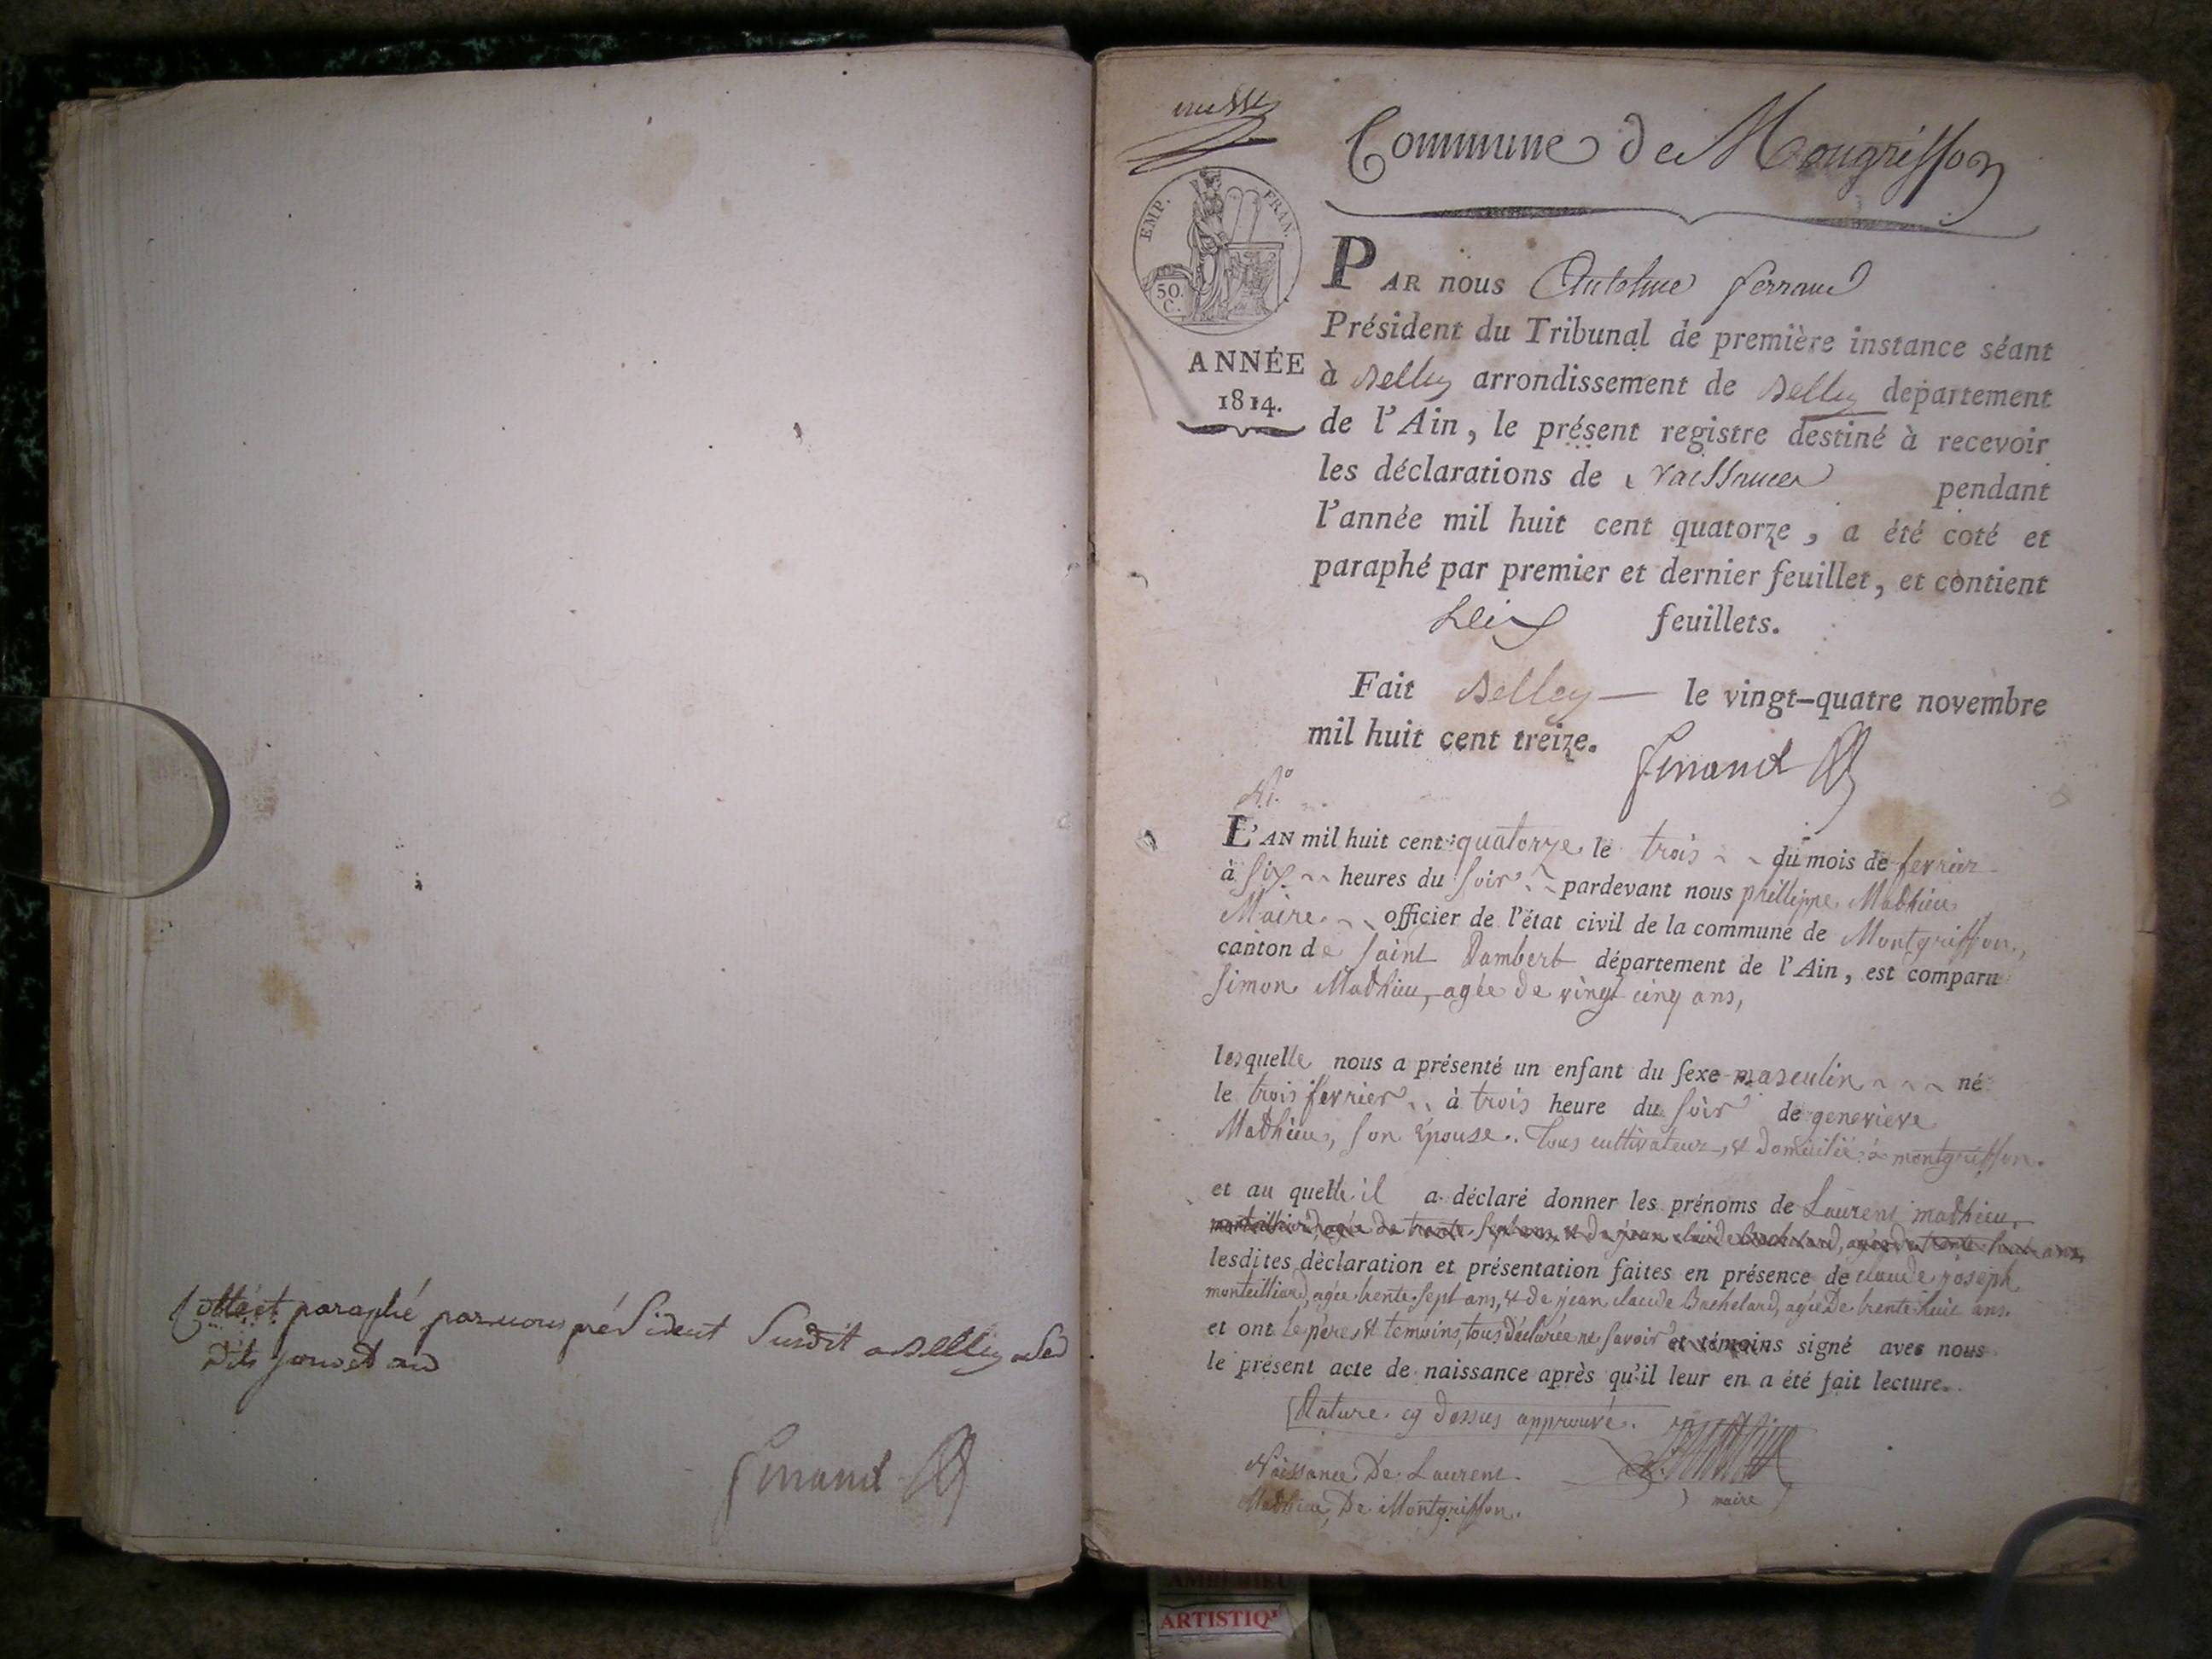 Cotté et paraphé par nous président susdit a Belley Led
dits jour et an
ferrand
Commune de Mongriffon
EMP. FRAN.
50.
C.
ANNÉE
1814.
PAR nous Anthelme ferrand
Président du Tribunal de première instance séant
à Belley arrondissement de Belley departement
de l'Ain, le présent registre destiné à recevoir
les déclarations de Naissances pendant
l'année mil huit cent quatorze, a été coté et
paraphé par premier et dernier feuillet, et contient
six feuillets.
Fait Belley — le vingt-quatre novembre
mil huit cent treize.
ferrand
N.º 1.
L'AN mil huit cent quatorze le trois du mois de fevrier
à six heures du soir pardevant nous phillippe Mathieu
Maire officier de l'état civil de la commune de Montgriffon,
canton de saint Rambert département de l'Ain, est comparu
simon Mathieu, agée de vingt cinq ans,
lesquelle nous a présenté un enfant du sexe masculin né
le trois fevrier à trois heure du soir de genevieve
Mathieu, son épouse. tous cultivateur, et domicilié à montgriffon.
et au quelle il a déclaré donner les prénoms de Laurent mathieu,
monteilliard, agée de trente sept ans, et de jean claude Bachelard, agée de trente huit ans,
lesdites dèclaration et présentation faites en présence de claude joseph
monteilliard, agée trente sept ans, et de jean claude Bachelard, agée De trente huit ans.
et ont le père, et temoins, tous déclarée ne savoir et témoins signé avec nous
le présent acte de naissance après qu'il leur en a été fait lecture.
Rature cy dessus approuvé.
maire
Naissance De Laurent
Mathieu, De Montgriffon.
AMBERIEU
ARTISTIQ